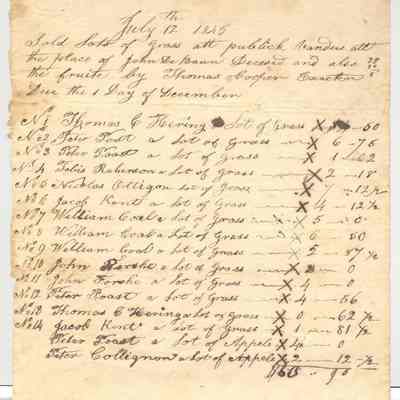 July 17th 1845
Sold Lots of Grass att publick Vandue att
the place of John De Baun Deceasd and also
the fruite by Thomas Cooper Exector
Due the 1 Day of December
No 1 Thomas C Hering Lot of Grass X 50
No 2 Peter Toast a Lot of Grass X 6 - 75
No 3 Peter Toast a Lot of Grass X 1 - 62
No 4 Robinson a Lot of Grass X 2 - 18
No 5 Nicolas a Lot of Grass X 7 - 12 1/2
No 6 Jacob Kent a Lot of Grass X 4 - 12 1/2
No 7 William Coal a Lot of Grass X 5 - 0
No 8 William Coal a Lot of Grass X 6 50
No 9 William Coal a Lot of Grass X 5 - 87 1/2
No 10 John a Lot of Grass X 0
No 11 John a Lot of Grass X 4 - 0
No 12 Peter Toast a Lot of Grass X 4 - 56
No 13 Thomas C Hering a Lot of Grass X 0 - 62 1/2
No 14 Jacob Kent a Lot of Grass X 1 - 81 1/2
Peter Toast a Lot of Appels X 4 - 0
Peter Collignon a Lot of Appels X 2 - 12 1/2